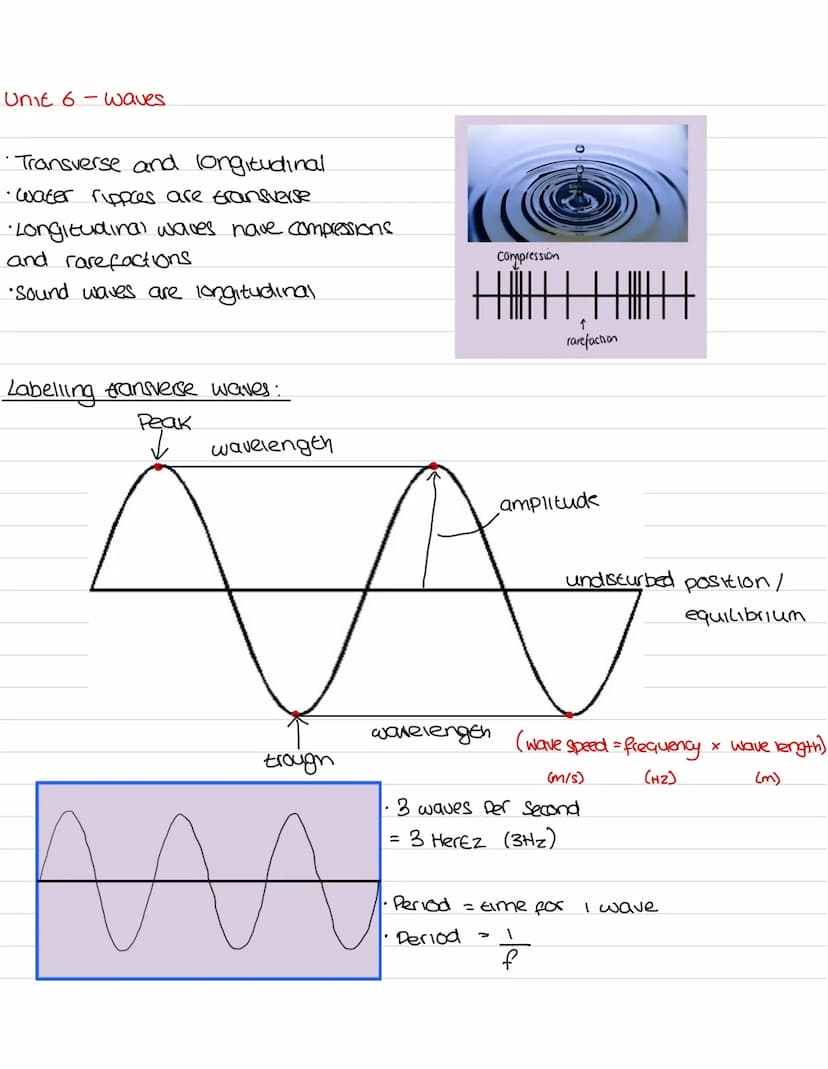 Unit 6 - Waves
· Transverse and longitudinal
· Water ripples are transverse
· Longitudinal waves have compressions
and rarefactions
· Sound waves are longitudinal
Compression
rarefaction
Labelling transverse waves:
Peak
wavelength
amplitude
undisturbed position /
equilibrium
wavelength
trough
(wave speed = frequency × wave length)
(m/s) (Hz) (m)
· 3 waves per second
= 3 Hertz (3Hz)
· Period = time for 1 wave
· Period = 1/f